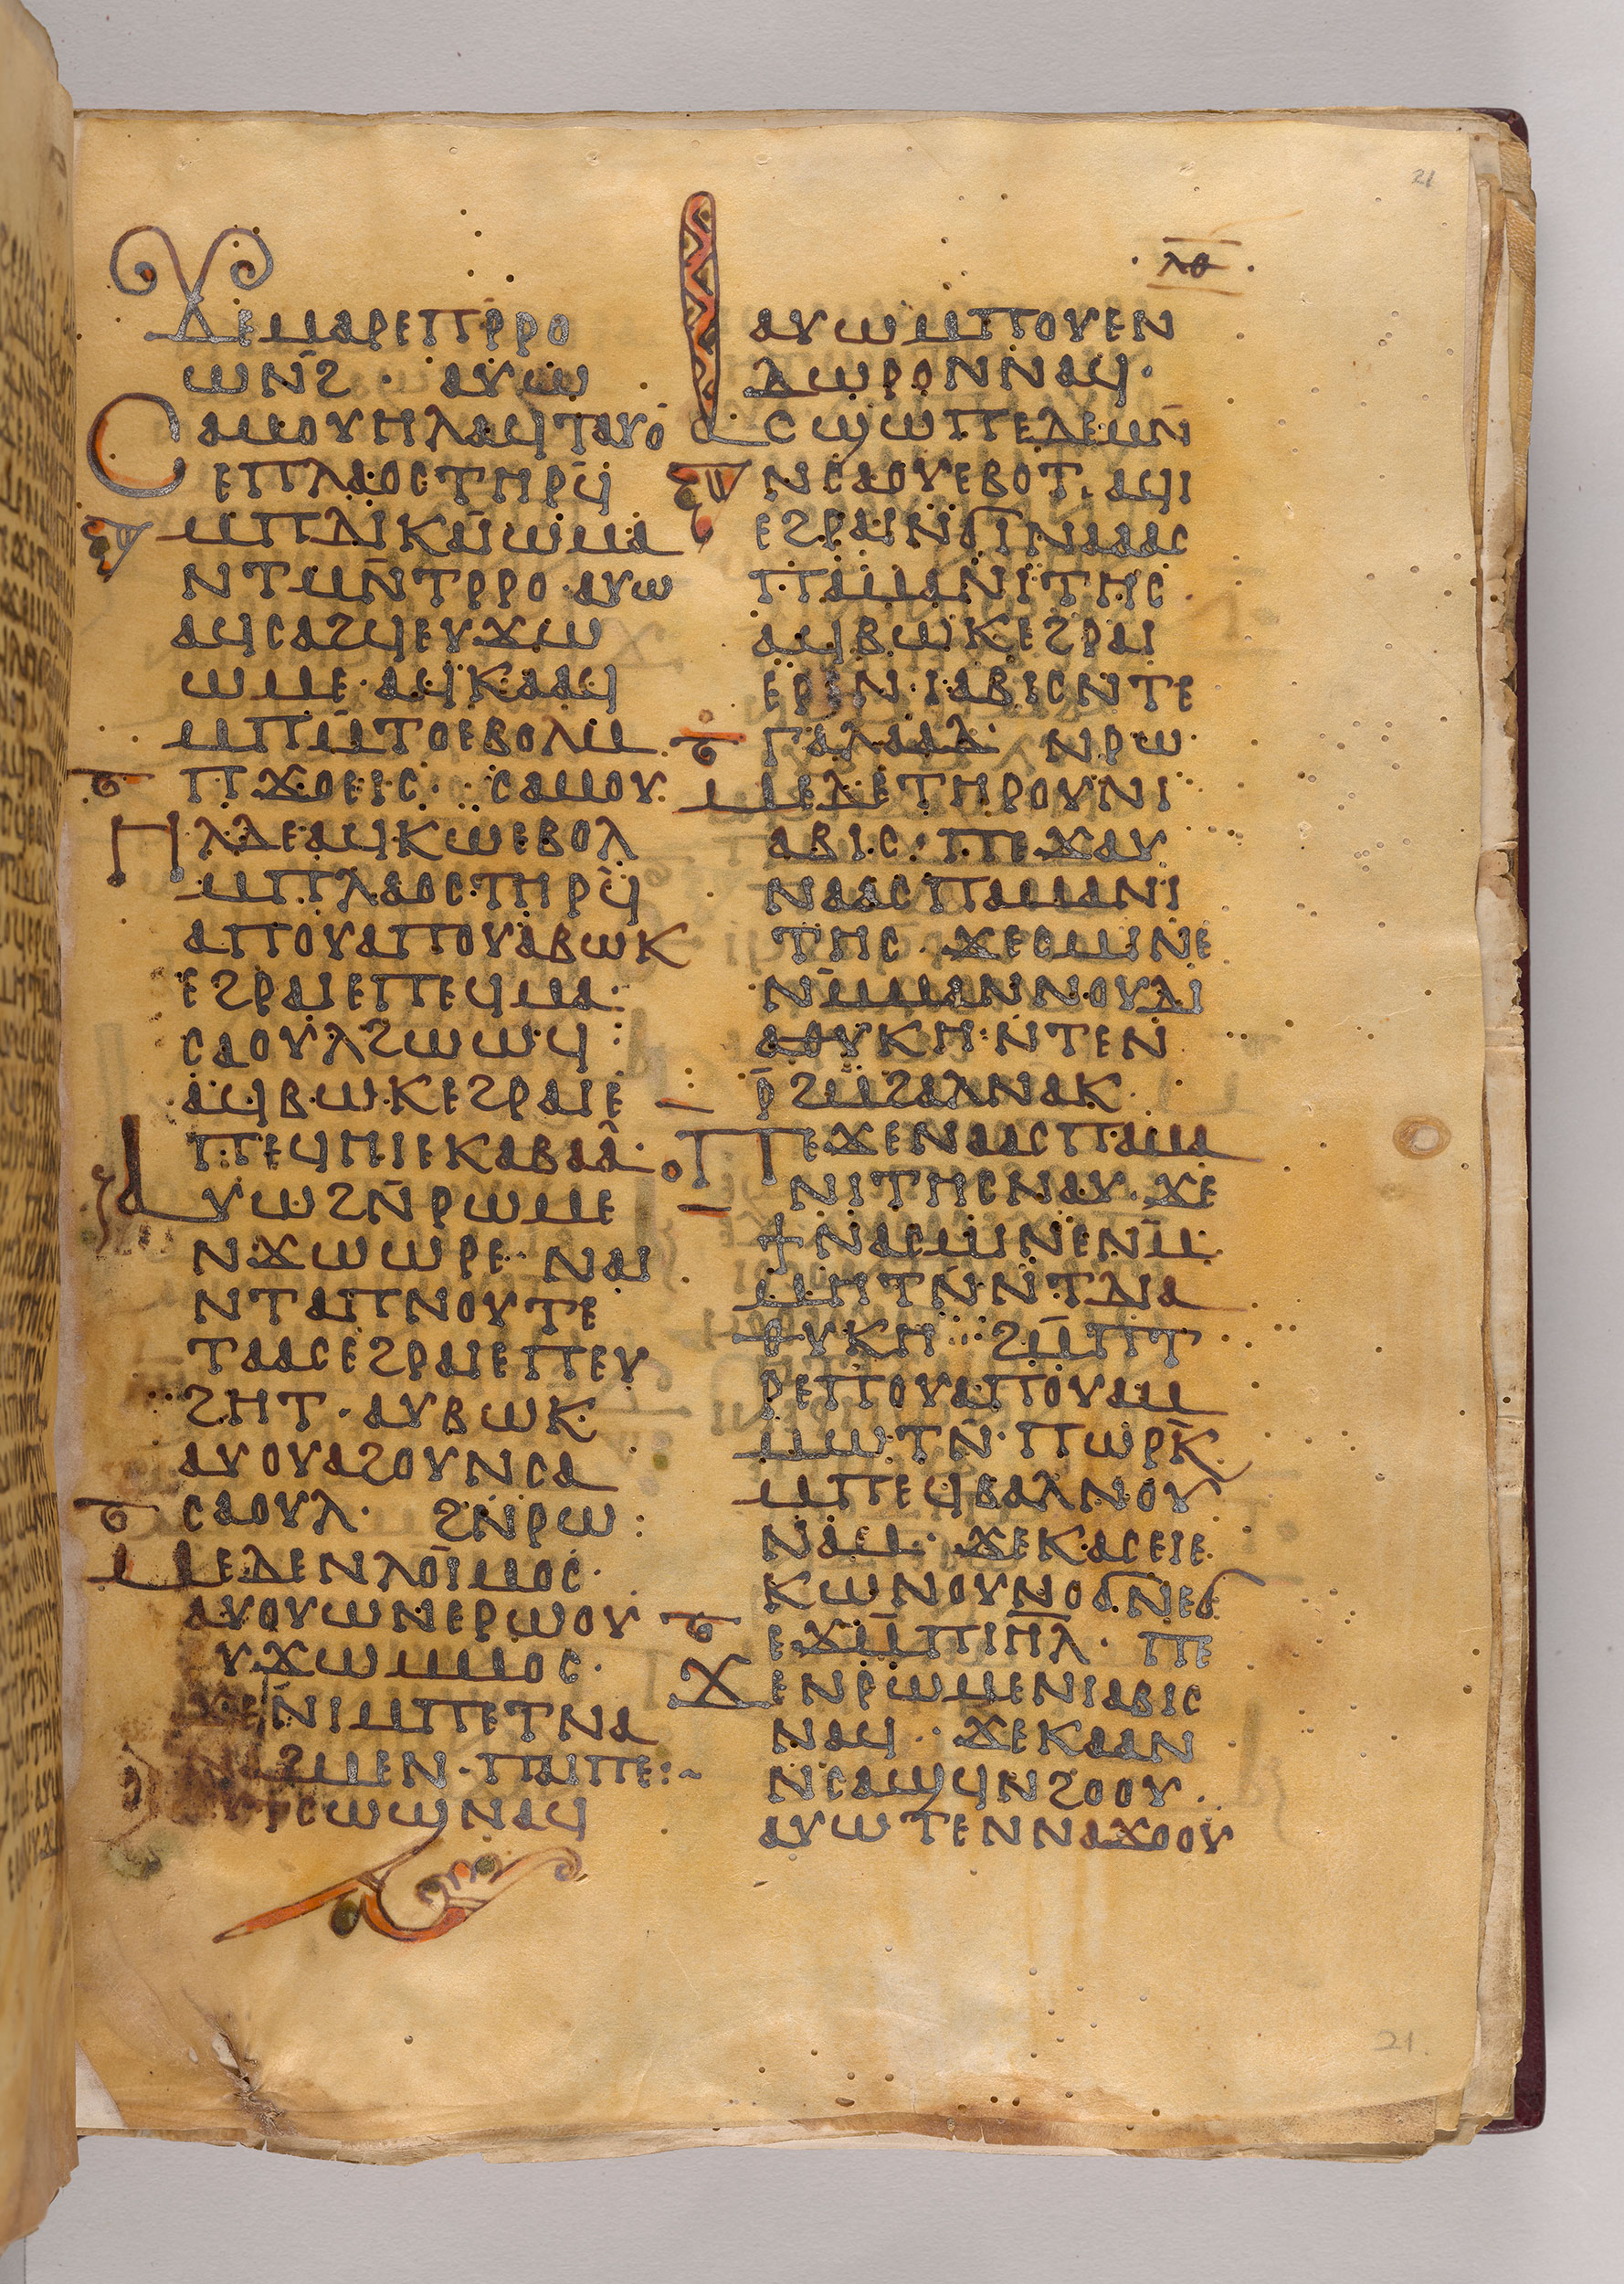 21
ⲗⲑ
ϫⲉⲙⲁⲣⲉⲡⲣ̄ⲣⲟ
ⲱⲛϩ̄ · ⲁⲩⲱ
ⲥⲁⲙⲟⲩⲏⲗⲁϥⲧⲁⲩⲟ
ⲉⲡⲗⲁⲟⲥⲧⲏⲣϥ̄
ⲙⲡⲇⲓⲕⲁⲓⲱⲙⲁ
ⲛⲧⲙⲛ̄ⲧⲣⲣⲟ · ⲁⲩⲱ
ⲁϥⲥⲁϩϥⲉⲩϫⲱ
ⲱⲙⲉ · ⲁϥⲕⲁⲁϥ
ⲙⲡⲙ̄ⲧⲟⲉⲃⲟⲗⲙ
ⲡϫⲟⲉⲓⲥ · ⲥⲁⲙⲟⲩ
ⲏⲗⲇⲉⲁϥⲕⲱⲉⲃⲟⲗ
ⲙⲡⲗⲁⲟⲥⲧⲏⲣϥ̄
ⲁⲡⲟⲩⲁⲡⲟⲩⲁⲃⲱⲕ
ⲉϩⲣⲁⲓⲉⲡⲉϥⲙⲁ ·
ⲥⲁⲟⲩⲗϩⲱⲱϥ :
ⲁϥⲃⲱⲕⲉϩⲣⲁⲓⲉ
ⲡⲉϥⲏⲓⲉⲕⲁⲃⲁⲁ ·
ⲁⲩⲱϩⲛ̄ⲣⲱⲙⲉ
ⲛϫⲱⲱⲣⲉ · ⲛⲁⲓ
ⲛⲧⲁⲡⲛⲟⲩⲧⲉ
ⲧⲁⲁⲥⲉϩⲣⲁⲓⲉⲡⲉⲩ
ϩⲏⲧ · ⲁⲩⲃⲱⲕ
ⲁⲩⲟⲩⲁϩⲟⲩⲛⲥⲁ
ⲥⲁⲟⲩⲗ · ϩⲛ̄ⲣⲱ :
ⲙⲉⲇⲉⲛⲗⲟⲓⲙⲟⲥ ·
ⲁⲩⲟⲩⲱⲛⲉⲣⲱⲟⲩ
ⲩϫⲱⲙⲙⲟⲥ ·
ϫⲉⲛⲓⲙⲡⲉⲧⲛⲁ
ϩⲙⲉⲛ · ⲡⲁⲓⲡⲉ : ~
ⲥⲱϣⲛⲁϥ
ⲁⲩⲱⲙⲡⲟⲩⲉⲛ
ⲇⲱⲣⲟⲛⲛⲁϥ ·
ⲁⲥϣⲱⲡⲉⲇⲉⲙⲛ̄
ⲛⲥⲁⲟⲩⲉⲃⲟⲧ · ⲁϥⲓ
ⲉϩⲣⲁⲓⲛϭⲓⲛⲁⲁⲥ
ⲡⲁⲙⲁⲛⲓⲧⲏⲥ ·
ⲁϥⲃⲱⲕⲉϩⲣⲁⲓ
ⲉϫⲛⲓⲁⲃⲓⲥⲛⲧⲉ
ⲅⲁⲗⲁⲁⲇ · ⲛⲣⲱ
ⲙⲉⲇⲉⲧⲏⲣⲟⲩⲛⲓ
ⲁⲃⲓⲥ · ⲡⲉϫⲁⲩ
ⲛⲁⲁⲥⲡⲁⲙⲁⲛⲓ
ⲧⲏⲥ · ϫⲉⲥⲙⲓⲛⲉ
ⲛⲙ̄ⲙⲁⲛⲛⲟⲩⲇⲓ
ⲁⲑⲩⲕⲏ : ⲛⲧⲉⲛ
ⲣ̄ϩⲙϩⲁⲗⲛⲁⲕ ·
ⲡⲉϫⲉⲛⲁⲁⲥⲡⲁⲙⲁ
ⲛⲓⲧⲏⲥⲛⲁⲩ · ϫⲉ
ϯⲛⲁⲥⲙⲓⲛⲉⲛⲙ̄
ⲙⲏⲧⲛ̄ⲛⲧⲇⲓⲁ
ⲑⲩⲕⲏ : ϩⲙ̄ⲡⲧ
ⲣⲉⲡⲟⲩⲁⲡⲟⲩⲁⲙ
ⲙⲱⲧⲛ̄ · ⲡⲱⲣⲕ̄
ⲙⲡⲉϥⲃⲁⲗⲛⲟⲩ
ⲛⲁⲙ · ϫⲉⲕⲁⲥⲉⲓⲉ
ⲕⲱⲛⲟⲩⲛⲟϭⲛⲉϭ
ⲉϫⲙ̄ⲡⲓⲏ̄ⲗ · ⲡⲉ
ϫⲉⲛⲣⲱⲙⲉⲛⲓⲁⲃⲓⲥ
ⲛⲁϥ · ϫⲉⲕⲁⲁⲛ
ⲛⲥⲁϣϥⲛϩⲟⲟⲩ ·
ⲁⲩⲱⲧⲉⲛⲛⲁϫⲟⲟⲩ
21.